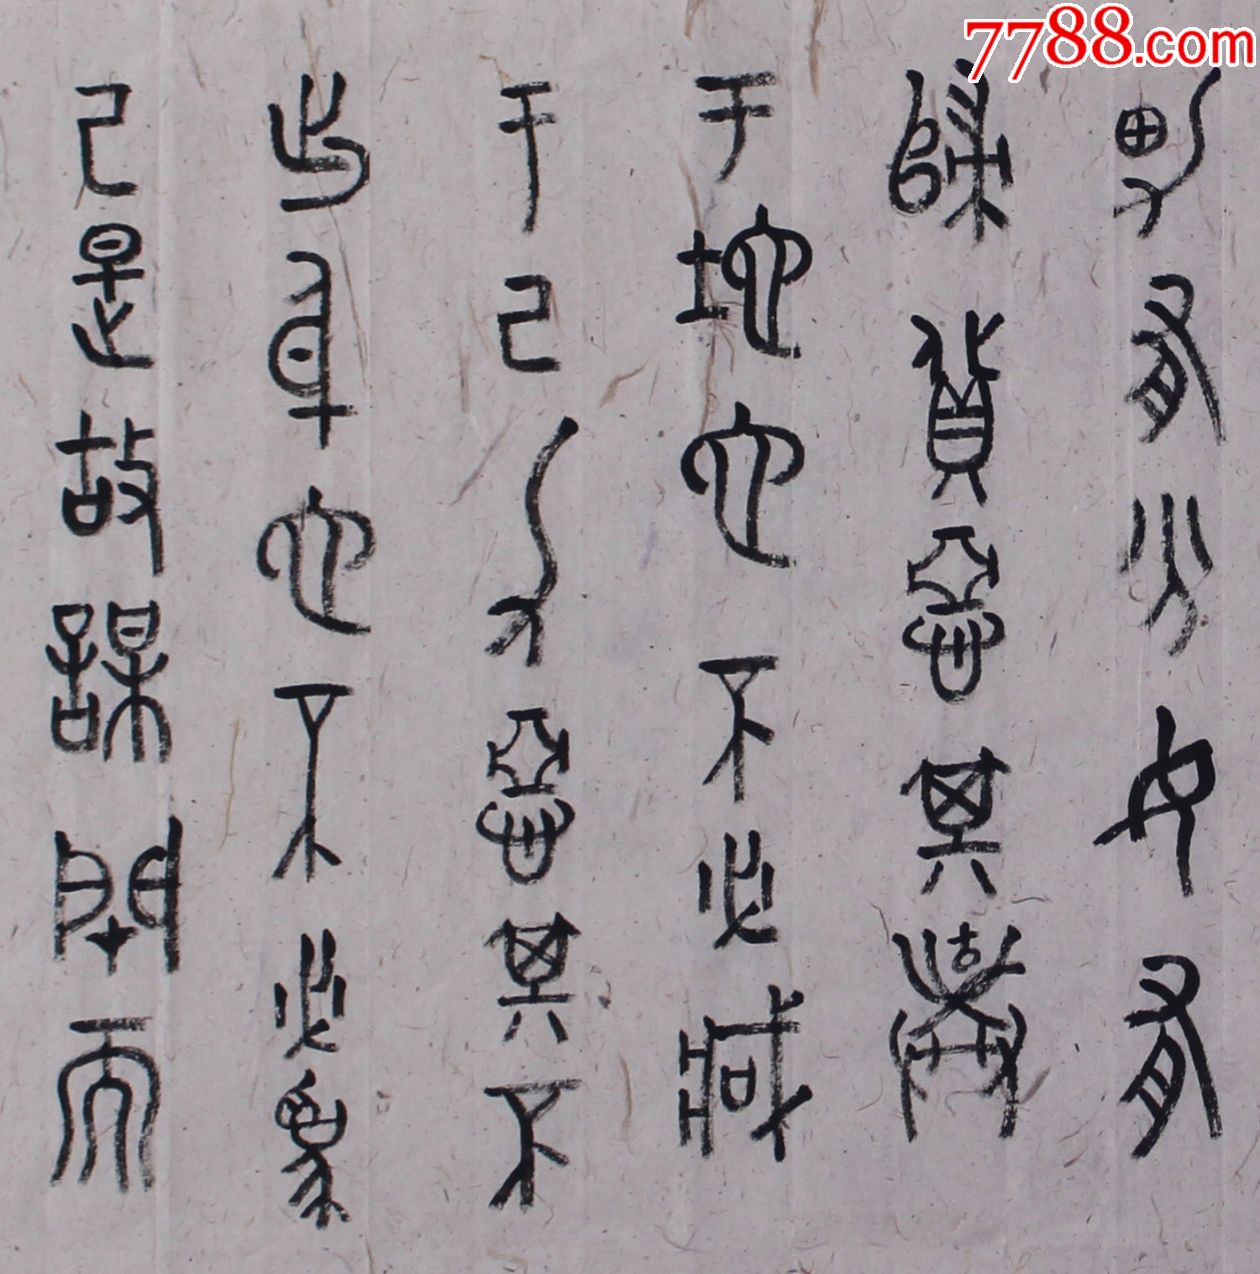 7788.com
男有分女有
歸貨惡其棄
于地也不必藏
于己力惡其不
出身也不必為
己是故謀閉而